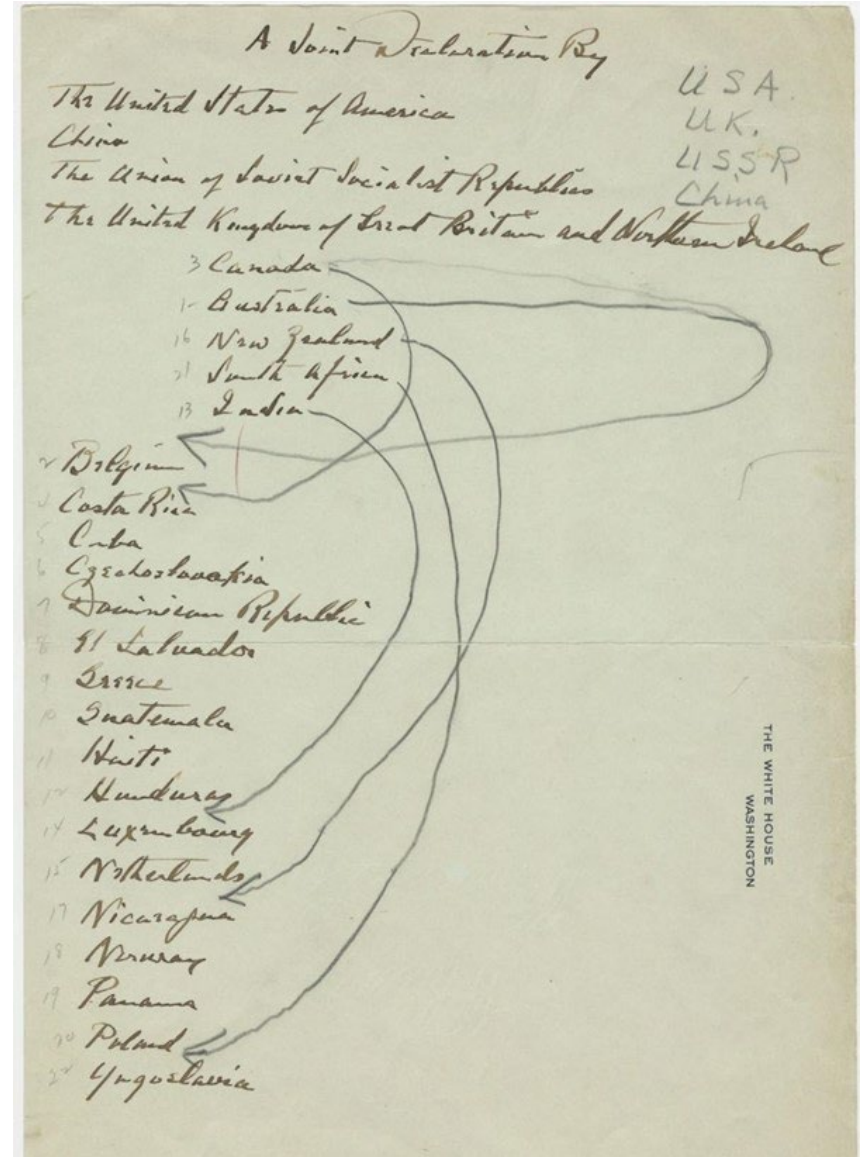 A Joint Declaration By
USA.
UK.
USSR
China
The United States of America
China
The Union of Soviet Socialist Republics
The United Kingdom of Great Britain and Northern Ireland
3 Canada
1 Australia
16 New Zealand
21 South Africa
13 India
2 Belgium
4 Costa Rica
5 Cuba
6 Czechoslovakia
7 Dominican Republic
8 El Salvador
9 Greece
10 Guatemala
11 Haiti
12 Honduras
14 Luxembourg
15 Netherlands
17 Nicaragua
18 Norway
19 Panama
20 Poland
22 Yugoslavia
THE WHITE HOUSE
WASHINGTON